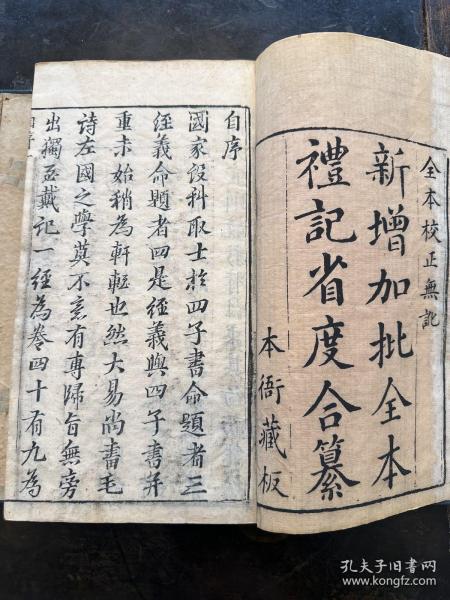 全本校正無訛
新增加批全本
禮記省度合纂
本衙藏板
自序
國家設科取士於四子書命題者三
經義命題者四是經義與四子書并
重未始稍為軒輊也然大易尚書毛
詩左國之學莫不意有專歸旨無旁
出獨至戴記一經為卷四十有九為
孔夫子旧书网
www.kongfz.com